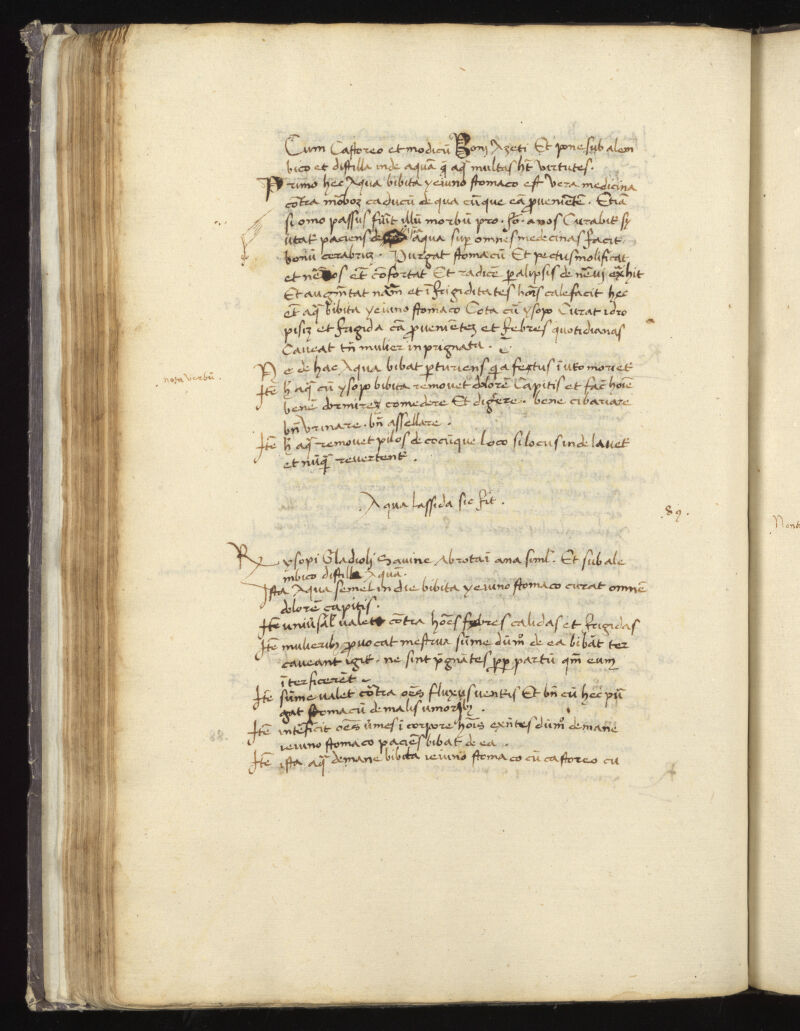 Cum Castoreo et modicū Bonj Azeti Et pone sub alem
bico et distilla inde aquā q̄ aq̄ multas ht̄ virtutes.
Primo hec Aqua bibita yeiuno stomaco est vera medicina
cōtra morboꝫ caducū de qua cūque cā proueniētē. Etiā
si omo passus fūit illū morbū pro. annos Curabit
vtat paciens de aqua sup omnes medecinas facit
bonū cerabrū. Purgat stomacū Et pectus molificat
et neruos et cōfortat Et radicē palipsis de nerui exhit
Et augmētat nām et ī frigiditates hoīs calefacit hec
et aq̄ bibita yeiuno stomaco Cota cū ysopo Curat idro
pisiꝫ et frigida cā prouenieteꝫ et febres quotidianas
Caueat tn̄ mulier inprignata.
Ne de hac Aqua bibat parturiens q̄a fertus ī vtō moriet
nota verbū.
Itē h̄ aq̄ cū ysopo bibita remouet dolorē Capitis et fac̄ hoīe
benē dormireꝫ comedere Et digere. bene cibariare
bn̄ vrinare. bn̄ assellare.
Itē h̄ aq̄ remouet pilos de cocūque loco si locus inde lauet
et nūq̄ reuertent.
.Aqua lassida sic fit.
.89.
Rx ysopi Gladiolj Sauine Abrotaī ana simł. Et sub ale
mbico distilla Aquā.
Ista Aqua semel in die bibita yeiuno stomaco curat omnē
dolorē capitis.
Itē uniūsał valet cōtra hoēs febres calidas et frigidas
Itē mulieribꝫ prouocat mestrua sūme dūmᵒ de ea bibāt ter
caueant igit. ne sint p̄gnātes pp partū qm̄ eum
īterficerēt
Itē sūme valet cōtra oēs fluxus ventris Et bn̄ cū hec pū
gat stomacū de malis umoribꝫ.
Itē interficit oēs v̄mes ī corpore hoīs exn̄tes dūmᵒ de mane
ieiuno stomaco paciēs bibat de ea.
Itē ista aq̄ demane bibita ieiuno stomaco cū castoreo cū